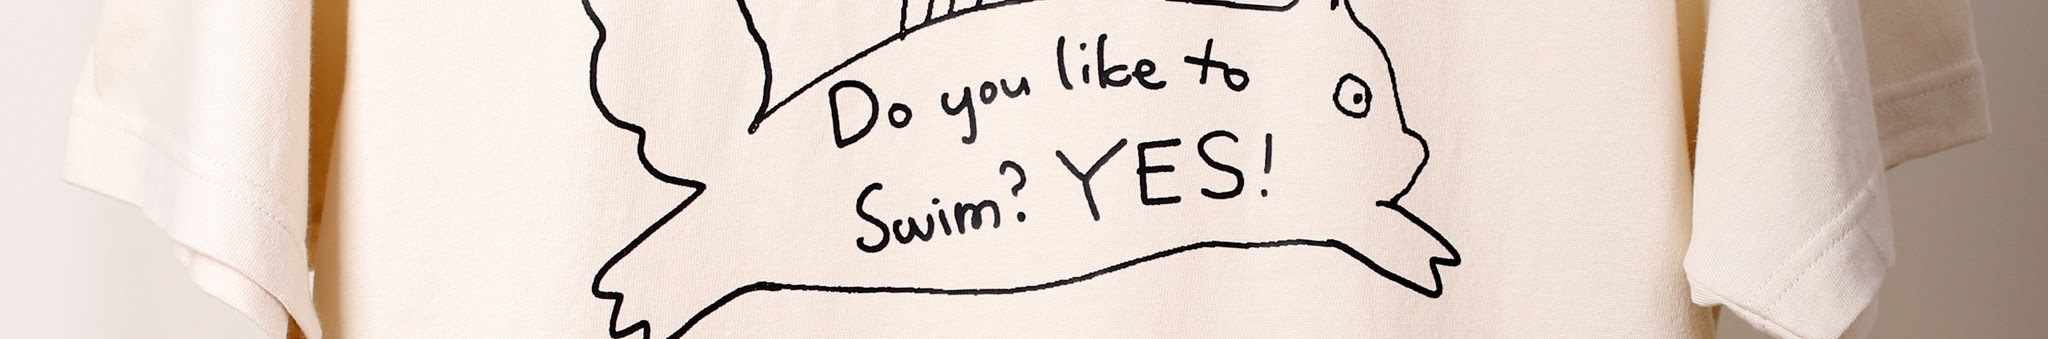 Do you like to
Swim? YES!